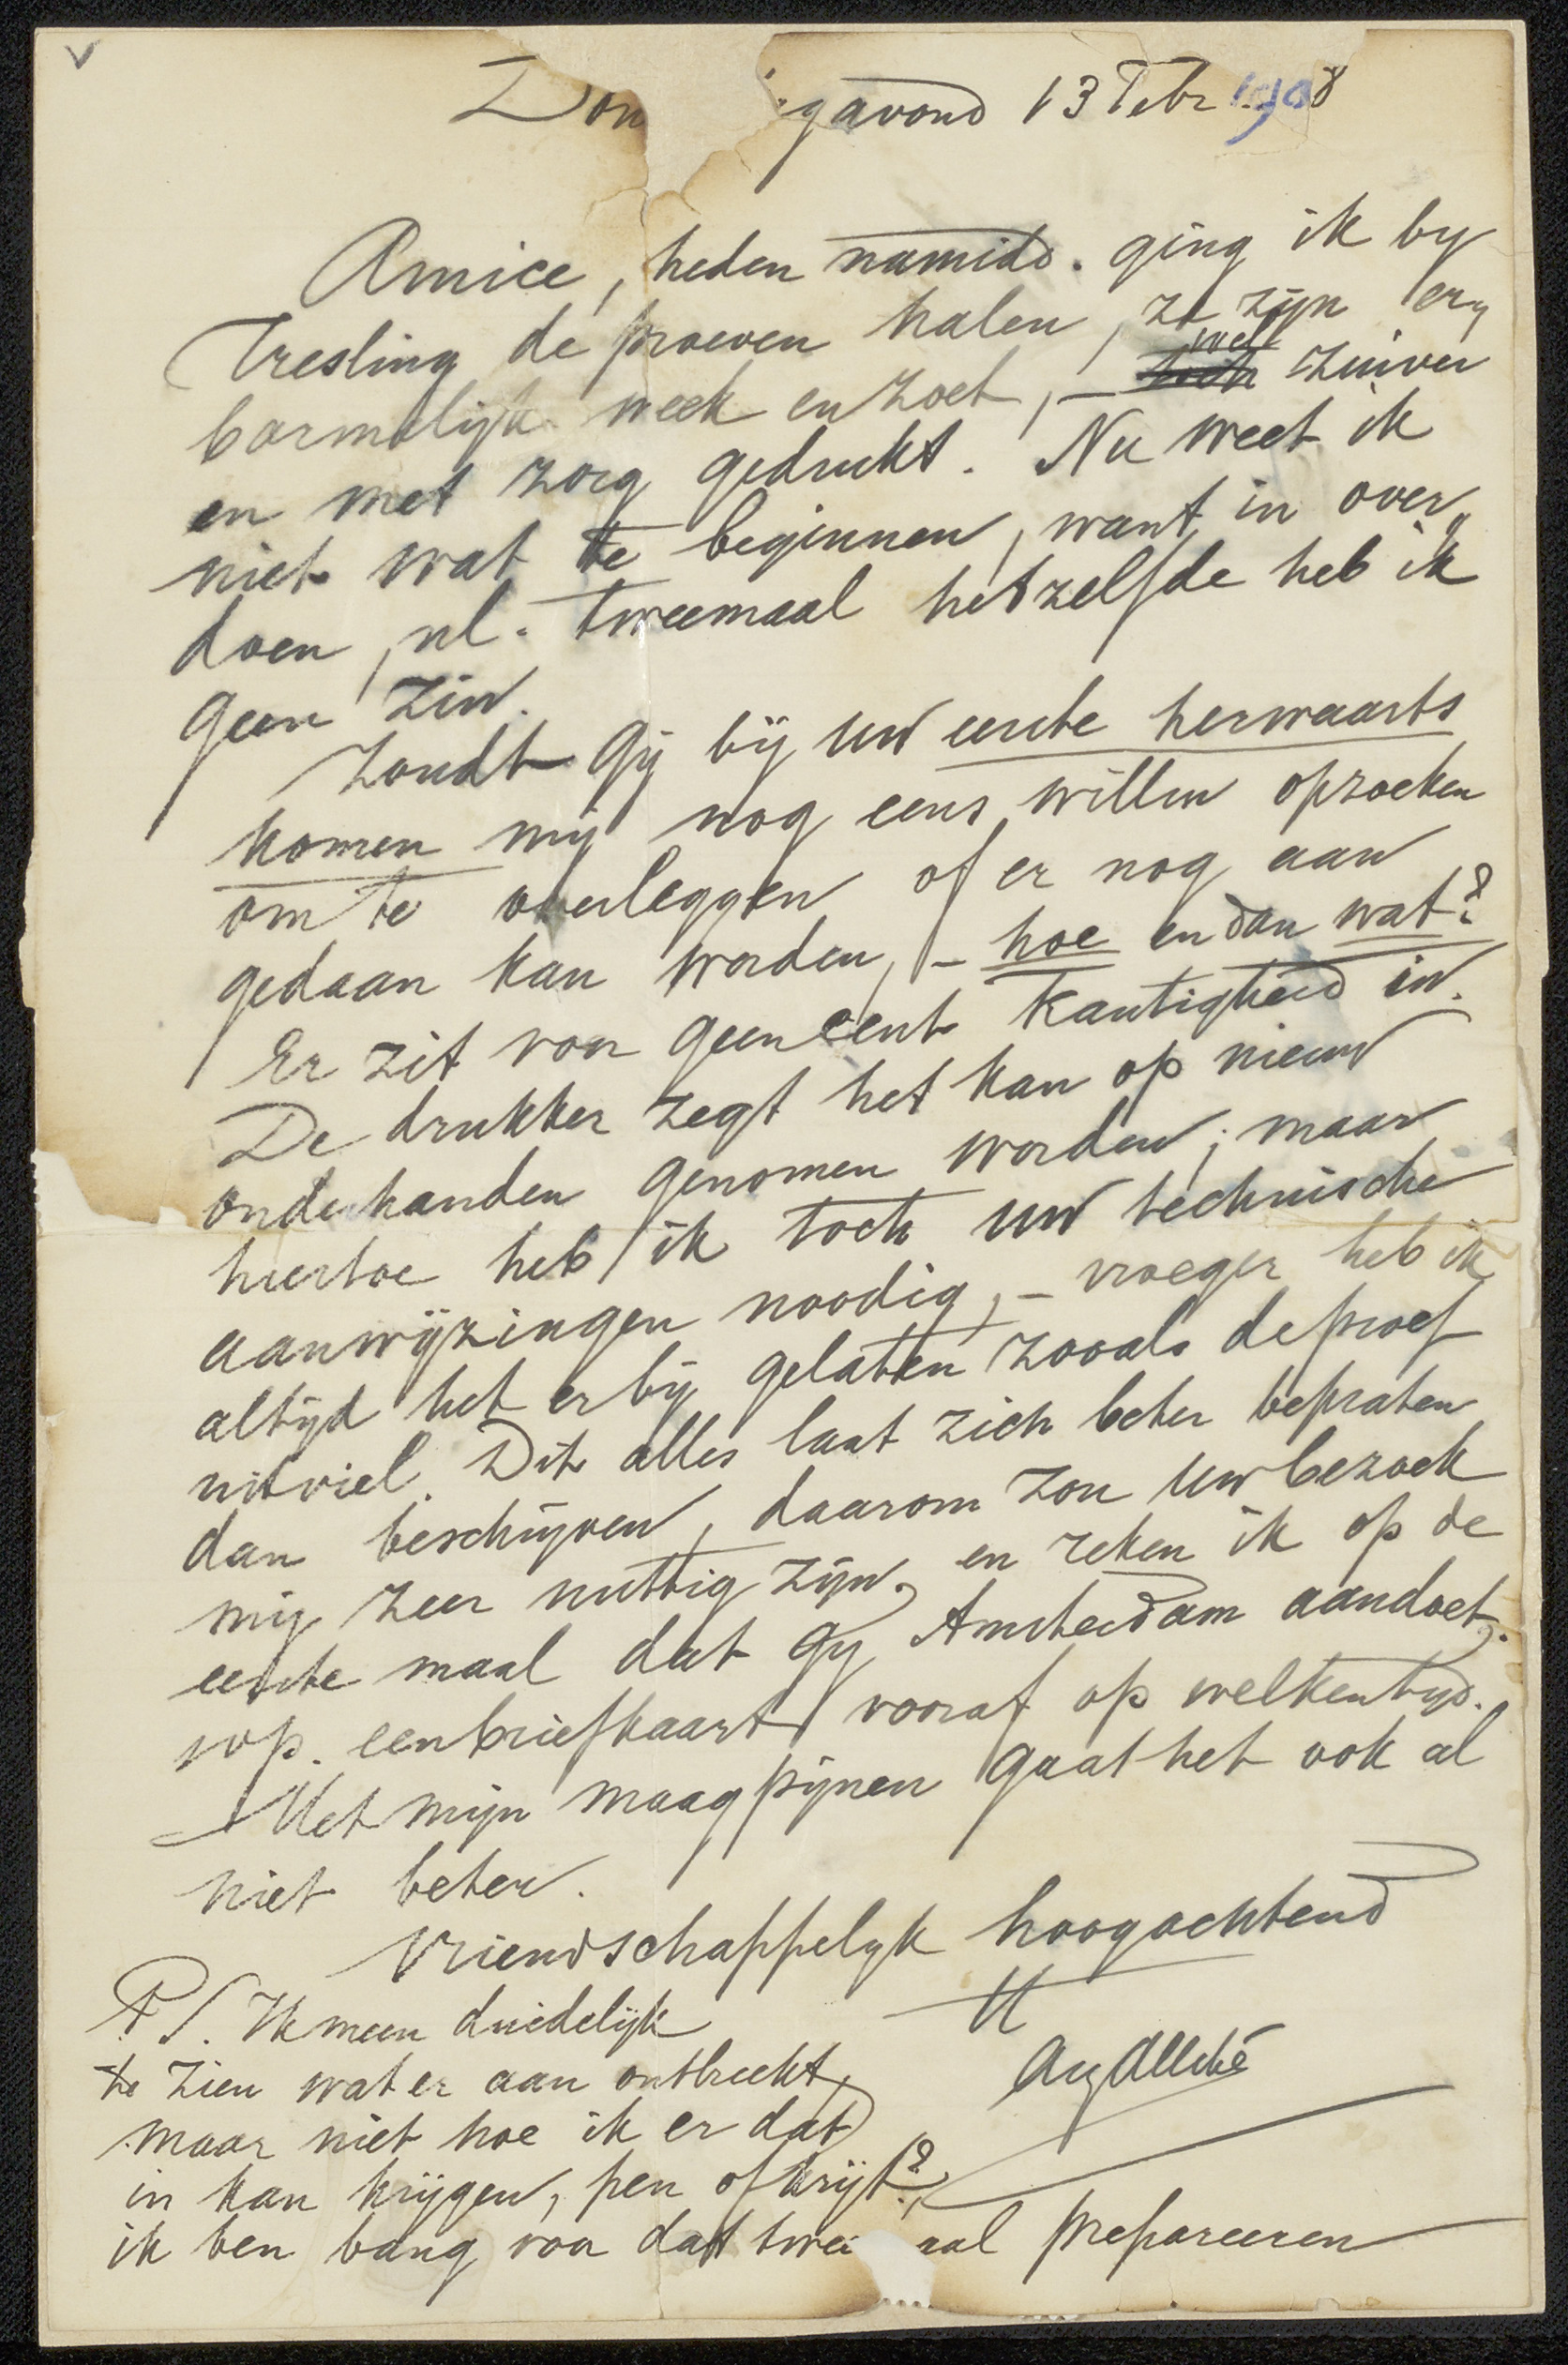 V
Don gavond 13 Febr 1908
Amice, heden namidd. ging ik by
Tresling de proeven halen, ze zijn er„
barmelijk week en zoet, – toch wel zuiver
en met zorg gedrukt. Nu weet ik
niet wat te beginnen, want in over„
doen, nl. tweemaal hetzelfde heb ik
geen zin.
Zoudt Gij bij uw eerste herwaarts
komen mij nog eens willen opzoeken
om te overleggen of er nog aan
gedaan kan worden, – hoe en dan wat?
Er zit voor geen cent kantigheid in.
De drukker zegt het kan op nieuw
onderhanden genomen worden; maar
hiertoe heb ik toch uw technische
aanwijzingen noodig, – vroeger heb ik
altijd het er bij gelaten zooals de proef
uitviel. Dit alles laat zich beter bepraten
dan beschrijven, daarom zou uw bezoek
mij zeer nuttig zijn, en reken ik op de
eerste maal dat Gy Amsterdam aandoet.
sop. een briefkaart vooraf op welken tijd.
Met mijn maagpijnen gaat het ook al
niet beter.
Vriendschappelyk hoogachtend
U
Aug Allebé
P.S. Ik meen duidelijk
te zien wat er aan ontbreekt,
maar niet hoe ik er dat
in kan krijgen, pen of krijt?
ik ben bang voor dat twee aal prepareeren